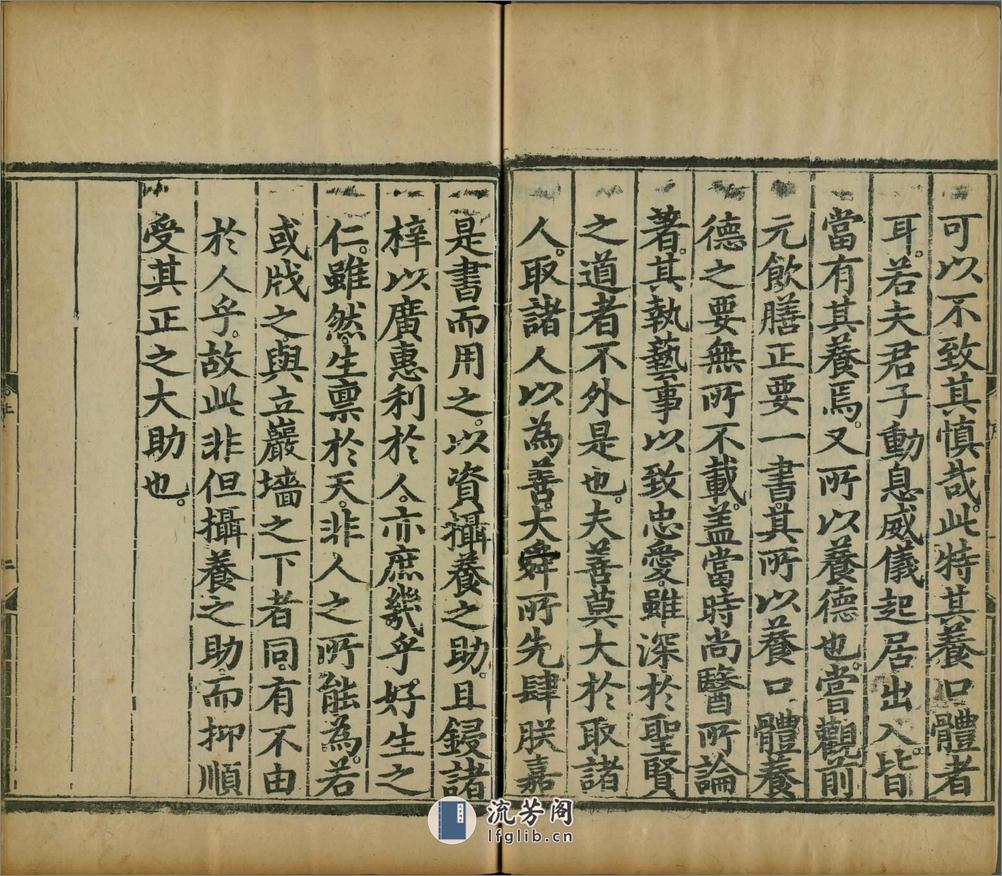 可以不致其慎哉。此特其養口體者
耳。若夫君子動息威儀起居出入。皆
當有其養焉。又所以養德也。嘗觀前
元飲膳正要一書。其所以養口體養
德之要無所不載。盖當時尚醫所論
著。其執藝事以致忠愛。雖深於聖賢
之道者不外是也。夫善莫大於取諸
人。取諸人以為善。大舜所先肆朕嘉
是書而用之。以資攝養之助。且鋟諸
梓以廣惠利於人。亦庶幾乎。好生之
仁。雖然。生禀於天。非人之所能為。若
或戕之。與立巖墻之下者同。有不由
於人乎。故此非但攝養之助。而抑順
受其正之大助也。
流芳阁
lfglib.cn